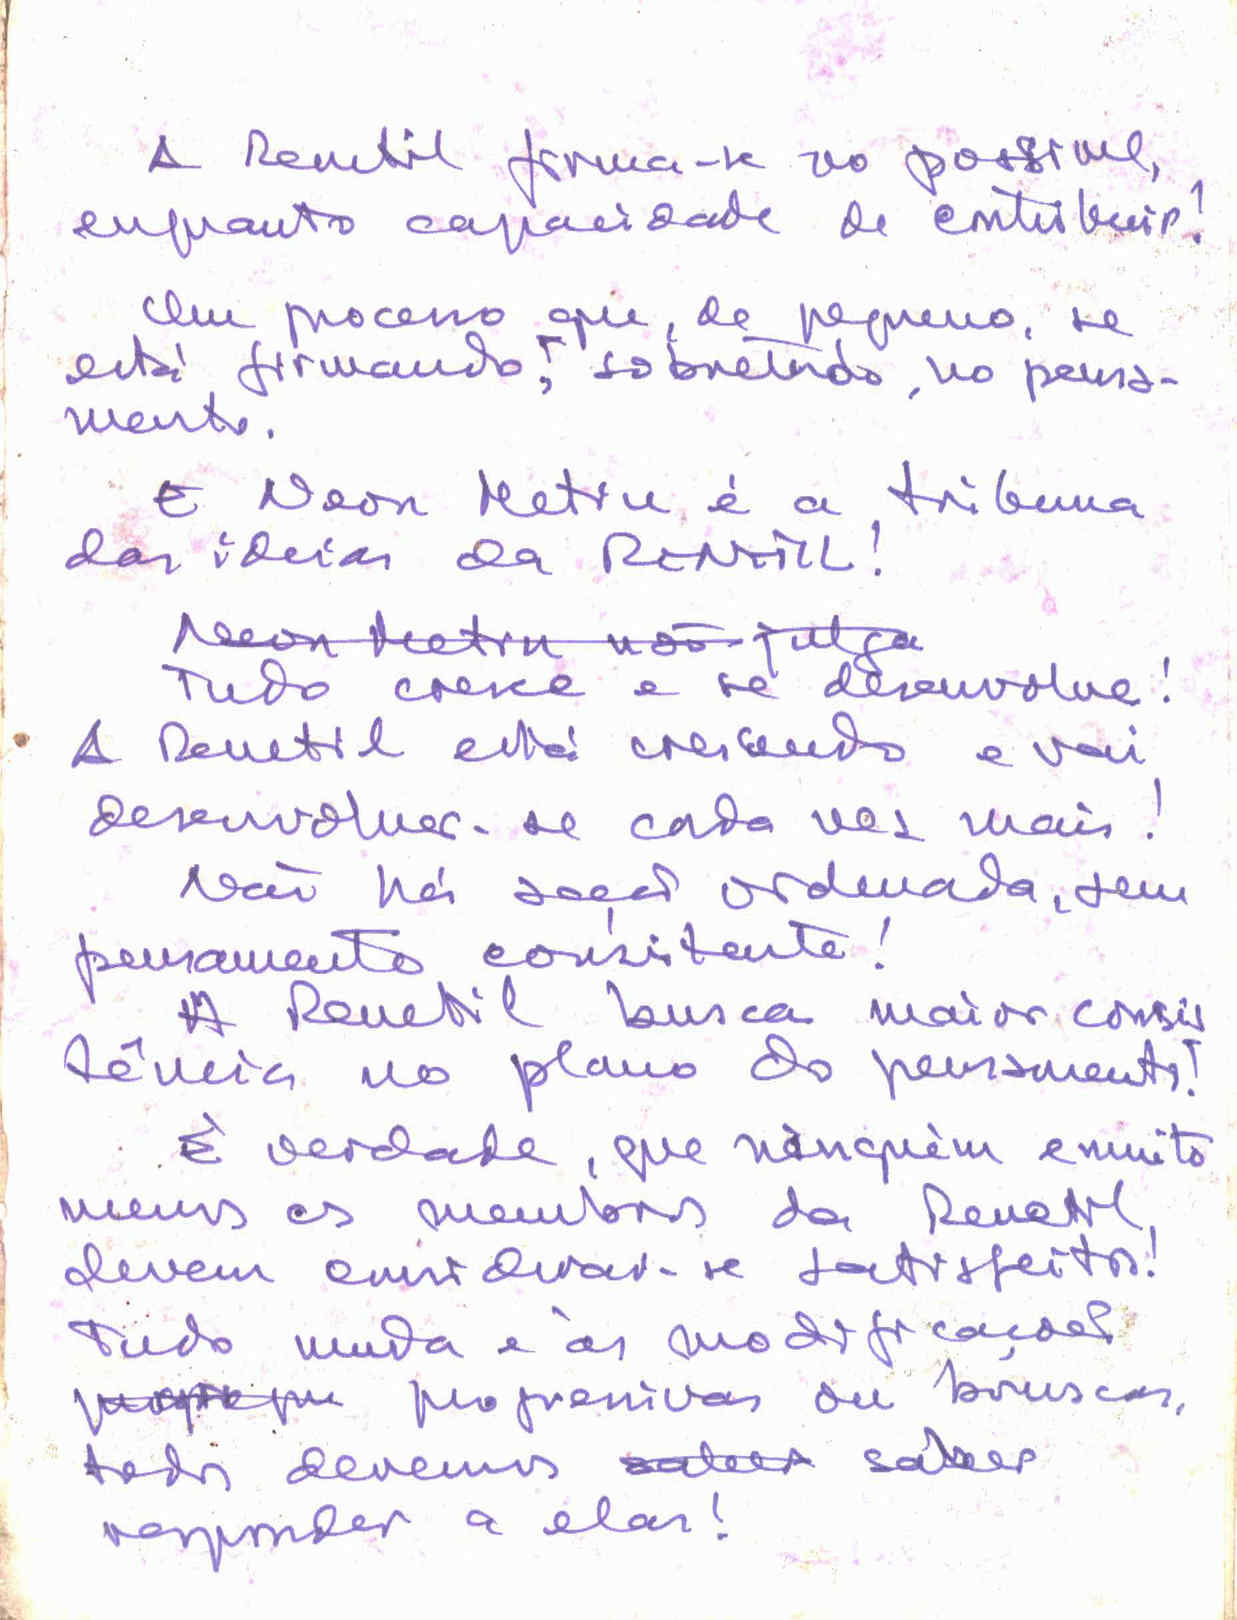 A Renetil firma-se no possível,
enquanto capacidade de contribuir!
Um processo que, de pequeno, se
está firmando, sobretudo, no pensa-
mento.
E Neon Metin é a tribuna
das ideias da RENETIL!
Neon Metin não julga
Tudo cresce e se desenvolve!
A Renetil está crescendo e vai
desenvolver-se cada vez mais!
Não há acção ordenada, sem
pensamento consistente!
A Renetil busca maior consis
tência no plano do pensamento!
É verdade, que ninguém e muito
menos os membros da Renetil,
devem considerar-se satisfeitos!
Tudo muda e às modificações
progressivas ou bruscas,
todos devemos saber saber
responder a elas!